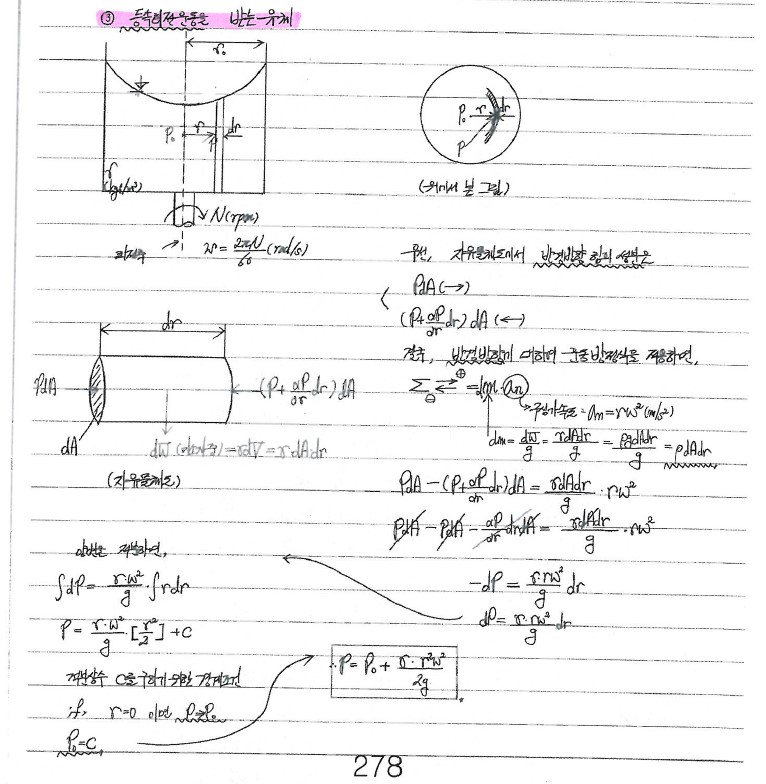 ③ 등속회전운동을 받는 유체
r₀
P₀ r dr
P
γ
(kgf/m³)
N(rpm)
회전수 ω = 2πN/60 (rad/s)
P₀ r dr
P
(위에서 본 그림)
우선, 자유물체도에서 반경방향 힘의 성분은
PdA (→)
(P+∂P/∂r dr) dA (←)
결국, 반경방향에 대하여 운동방정식을 적용하면,
Σ ⇄ ⊕ ⊖ = dm·an
구심가속도 = an = rω² (m/s²)
dm = dW/g = γdAdr/g = ρgdAdr/g = ρdAdr
PdA − (P+∂P/∂r dr)dA = γdAdr/g · rω²
PdA − PdA − ∂P/∂r drdA = γdAdr/g · rω²
−dP = γ·rω²/g dr
dP = γ·rω²/g dr
dr
PdA
(P+∂P/∂r dr)dA
dA
dW = γdV = γdAdr
(자유물체도)
양변을 적분하면,
∫dP = γ·ω²/g · ∫rdr
P = γ·ω²/g · [r²/2] + C
적분상수 C를 구하기 위한 경계조건
if, r=0 이면 P=P₀
P₀=C,
∴P = P₀ + γ·r²ω²/2g
278